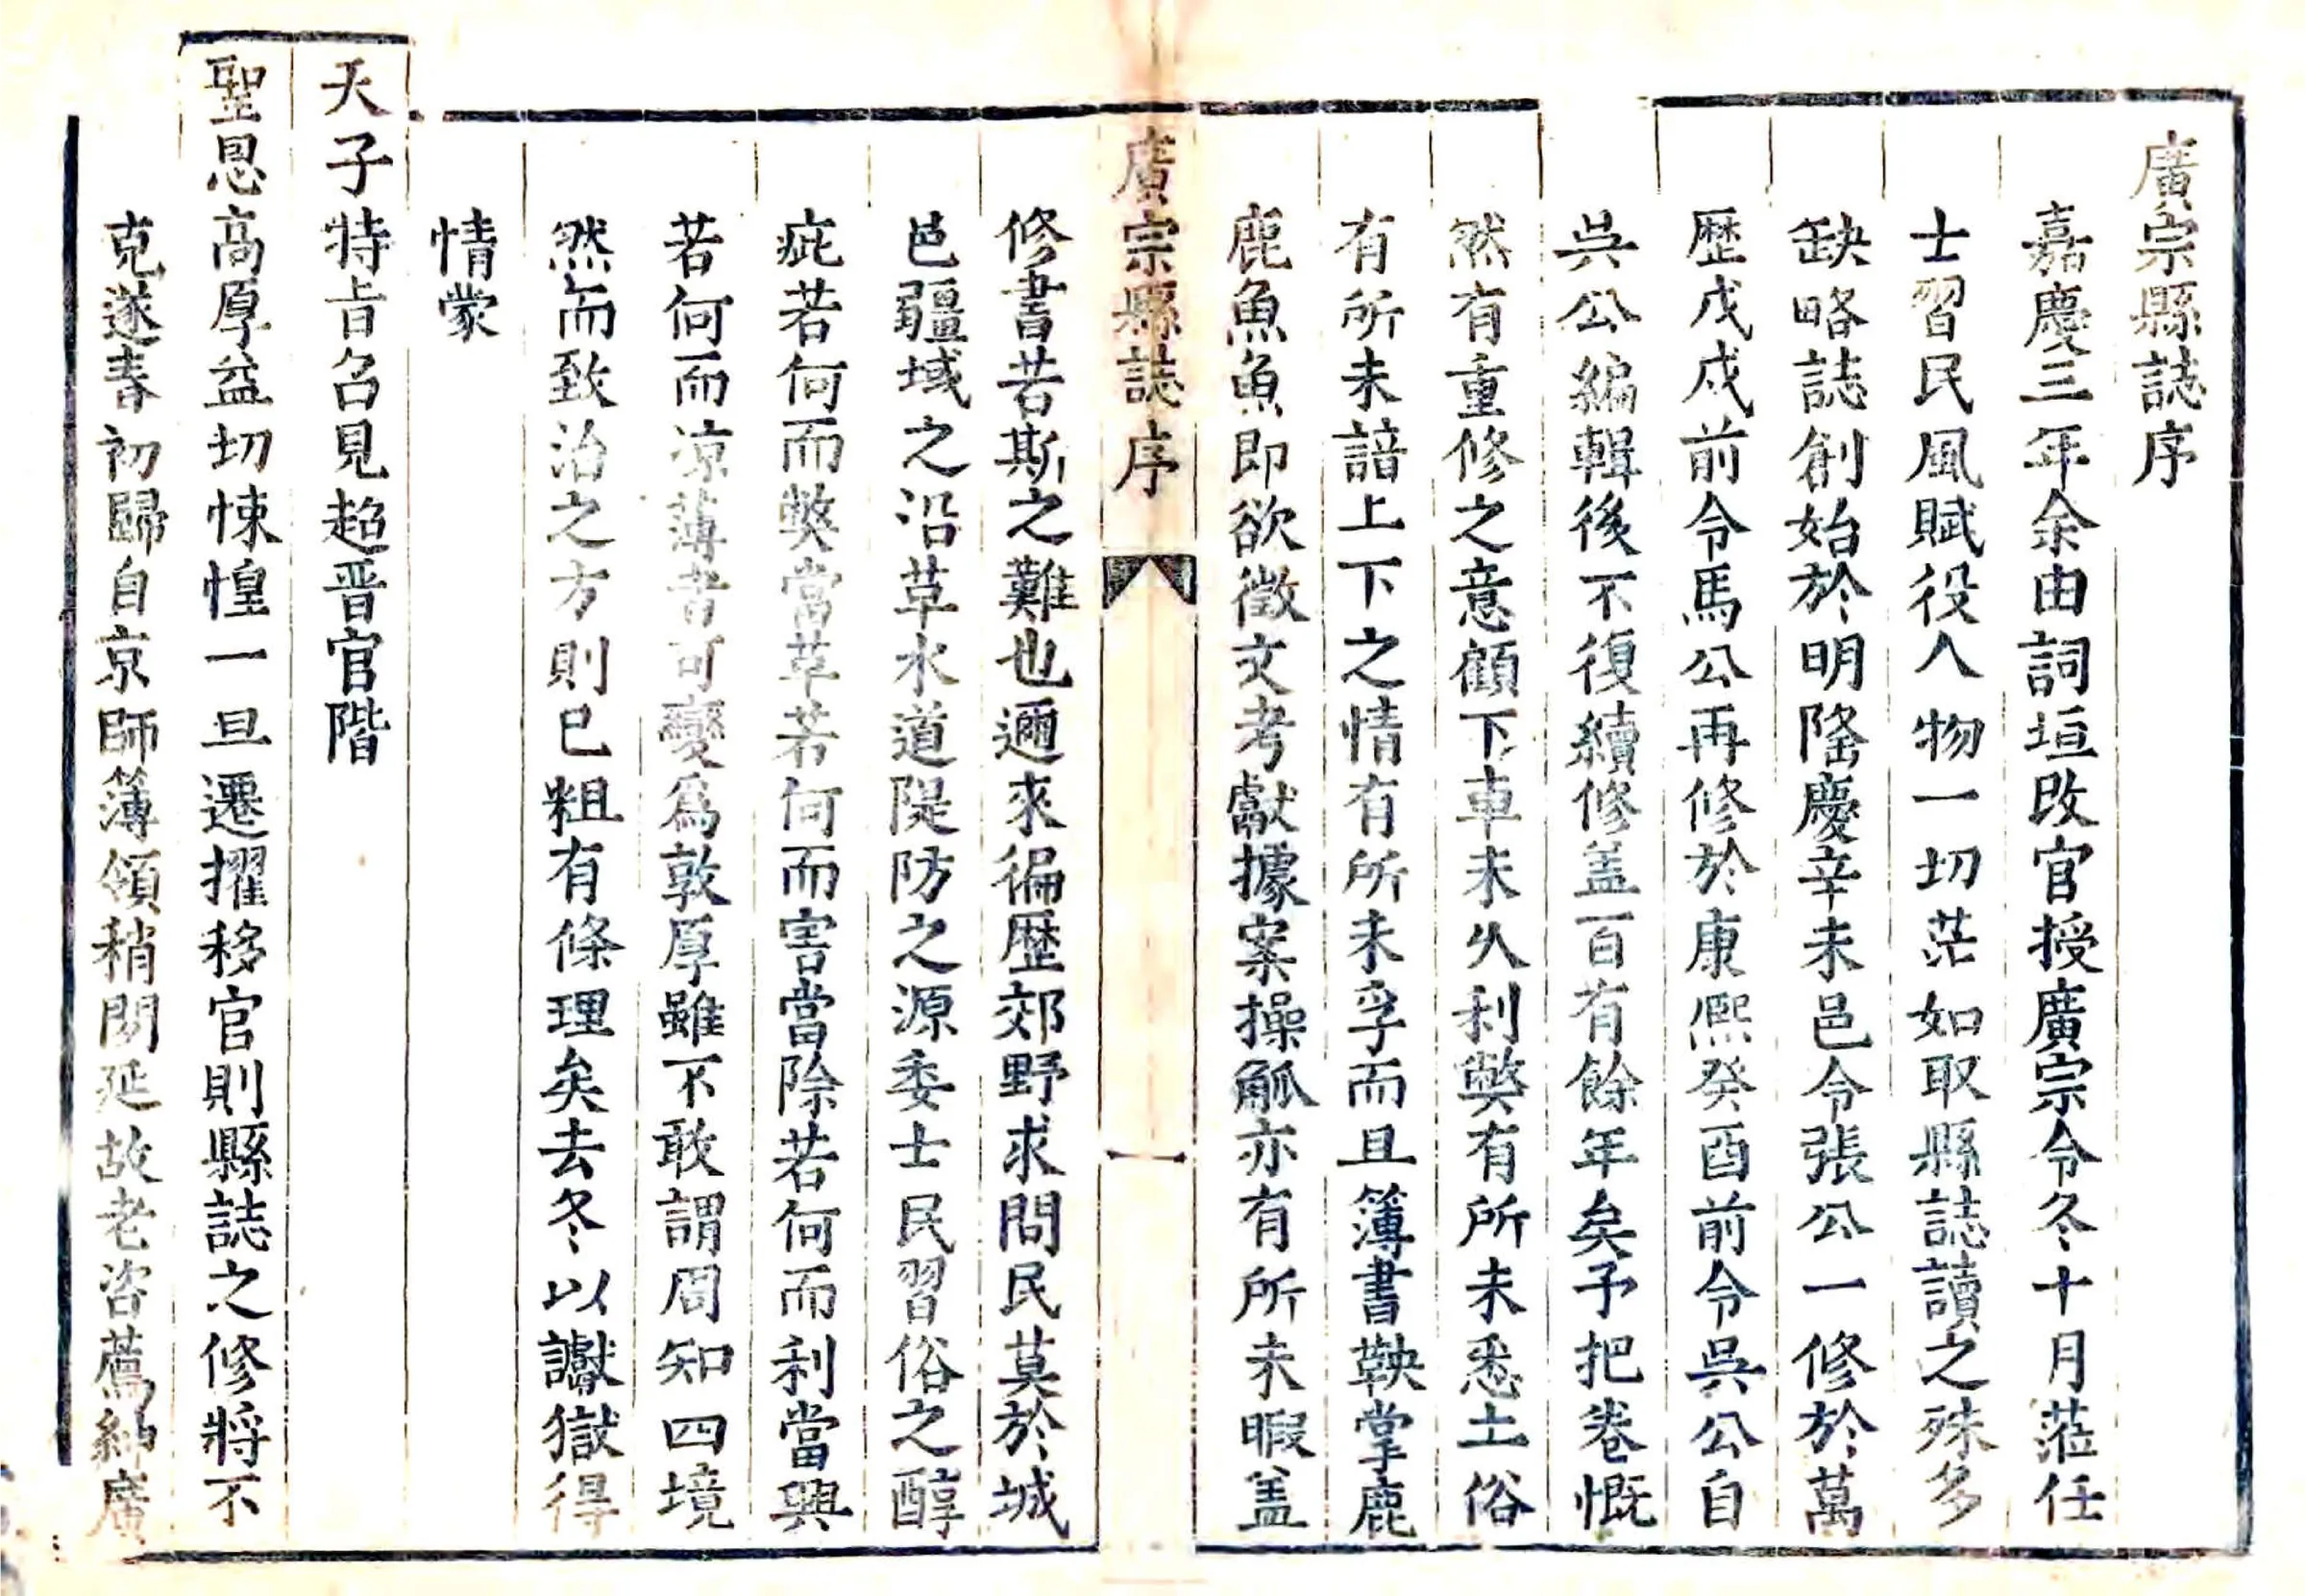 廣宗縣誌序
嘉慶三年余由詞垣改官授廣宗令冬十月蒞任
士習民風賦役人物一切茫如取縣誌讀之殊多
缺略誌創始於明隆慶辛未邑令張公一修於萬
歷戊戌前令馬公再修於康熙癸酉前令吳公自
吳公編輯後不復續修蓋百有餘年矣予把卷慨
然有重修之意顧下車未久利獘有所未悉土俗
有所未諳上下之情有所未孚而且簿書鞅掌鹿
鹿魚魚即欲徵文考獻據案操觚亦有所未暇蓋
廣宗縣誌序
一
修書若斯之難也邇來徧歷郊野求問民莫於城
邑疆域之沿革水道隄防之源委士民習俗之醇
疵若何而獘當革若何而害當除若何而利當興
若何而凉薄者可變爲敦厚雖不敢謂周知四境
然而致治之方則已粗有條理矣去冬以讞獄得
情蒙
天子特旨召見超晋官階
聖恩高厚益切悚惶一旦遷擢移官則縣誌之修將不
克遂春初歸自京師簿領稍閒延故老咨薦紳廣